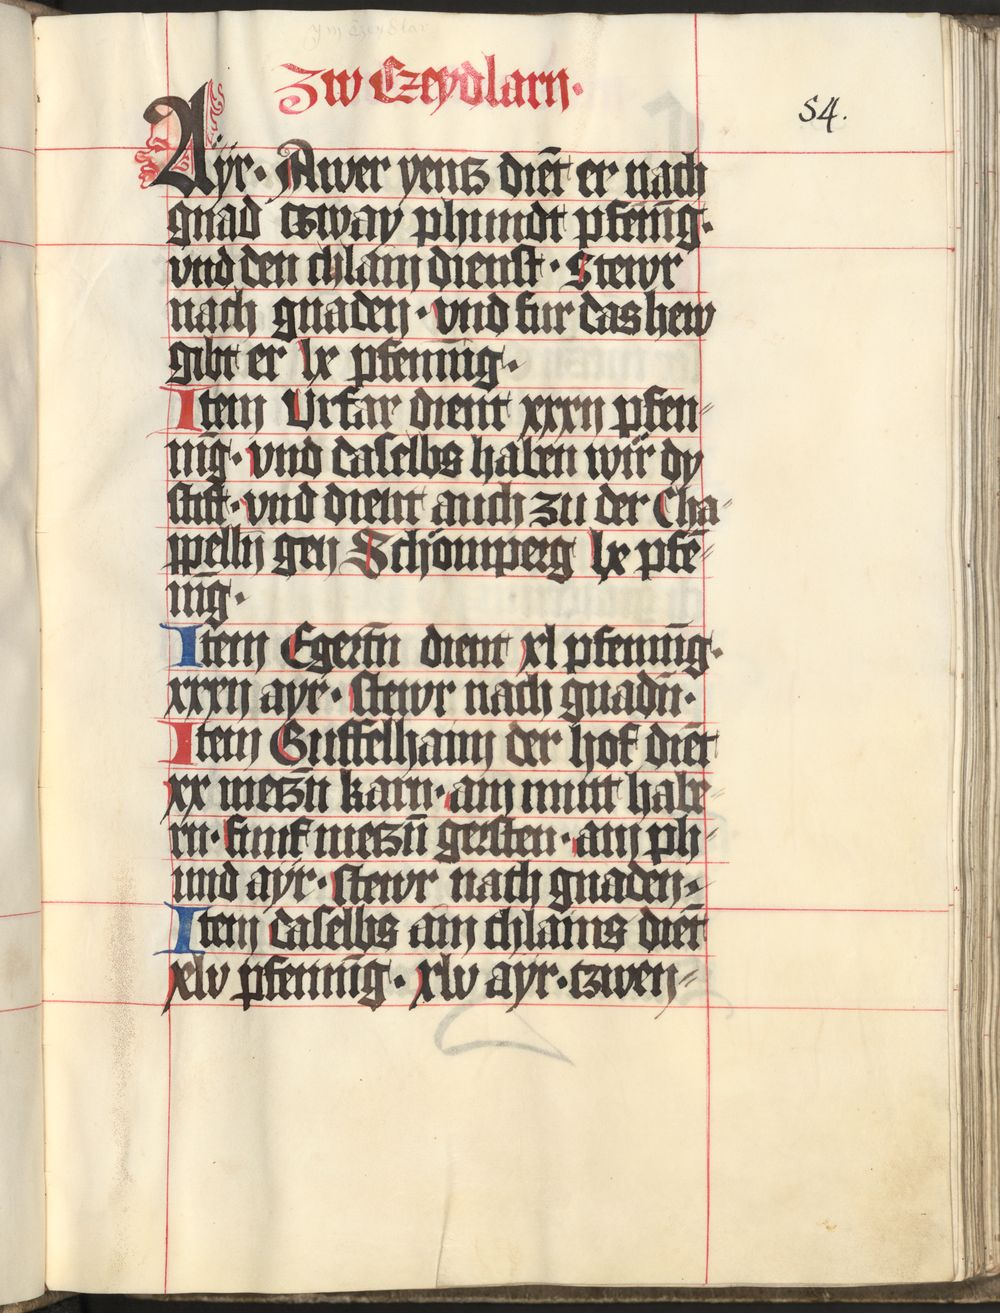 ym Czeydlar
Zw Czeydlarn·
54.
Ayr· Awer yentz dien̄t er nach
gnad tzway phundt pfenīg·
vnd den chlain dienst· Stewr
nach gnaden· vnd fur das hew
gibt er lx pfennīg·
Item Urfar dient xxxij pfen⸗
nīg· vnd daselbs haben wir dy
stift· vnd dient auch zu der Cha⸗
ppelln gen Schonnperg lx pfē⸗
nīg·
Item Egertn̄ dient xl pfennīg·
xxxij ayr· stewr nach gnadn̄·
Item Guffelhann der hof diēt
xx metzn̄ karn· ain mutt habe⸗
rn· funf metzn̄ gersten· ain ph⸗
und ayr· stewr nach gnaden·
Item daselbs ain chlains diēt
xlv pfennīg· xlv ayr· tzwen⸗